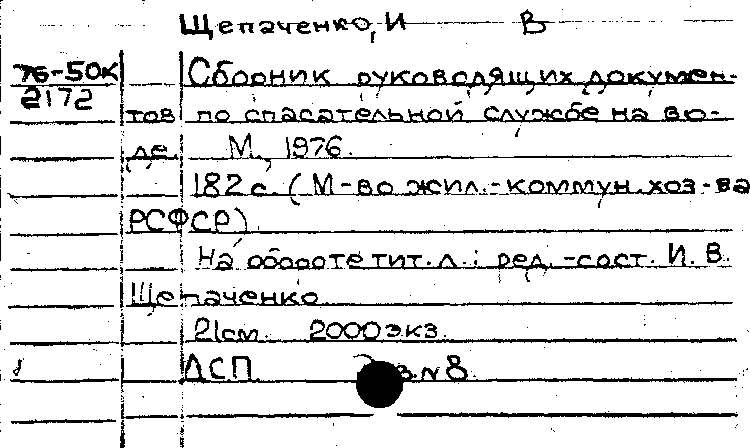 Щепаченко, И В
76-50К Сборник руководящих докумен-
2172
тов по спасательной службе на во-
де. М., 1976.
182 с. (М-во жил.-коммун. хоз-ва
РСФСР)
На обороте тит. л.: ред.-сост. И. В.
Щепаченко
21см. 2000 экз.
ДСП №8.